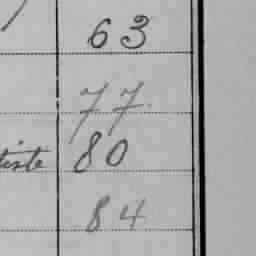 63
77
80
84